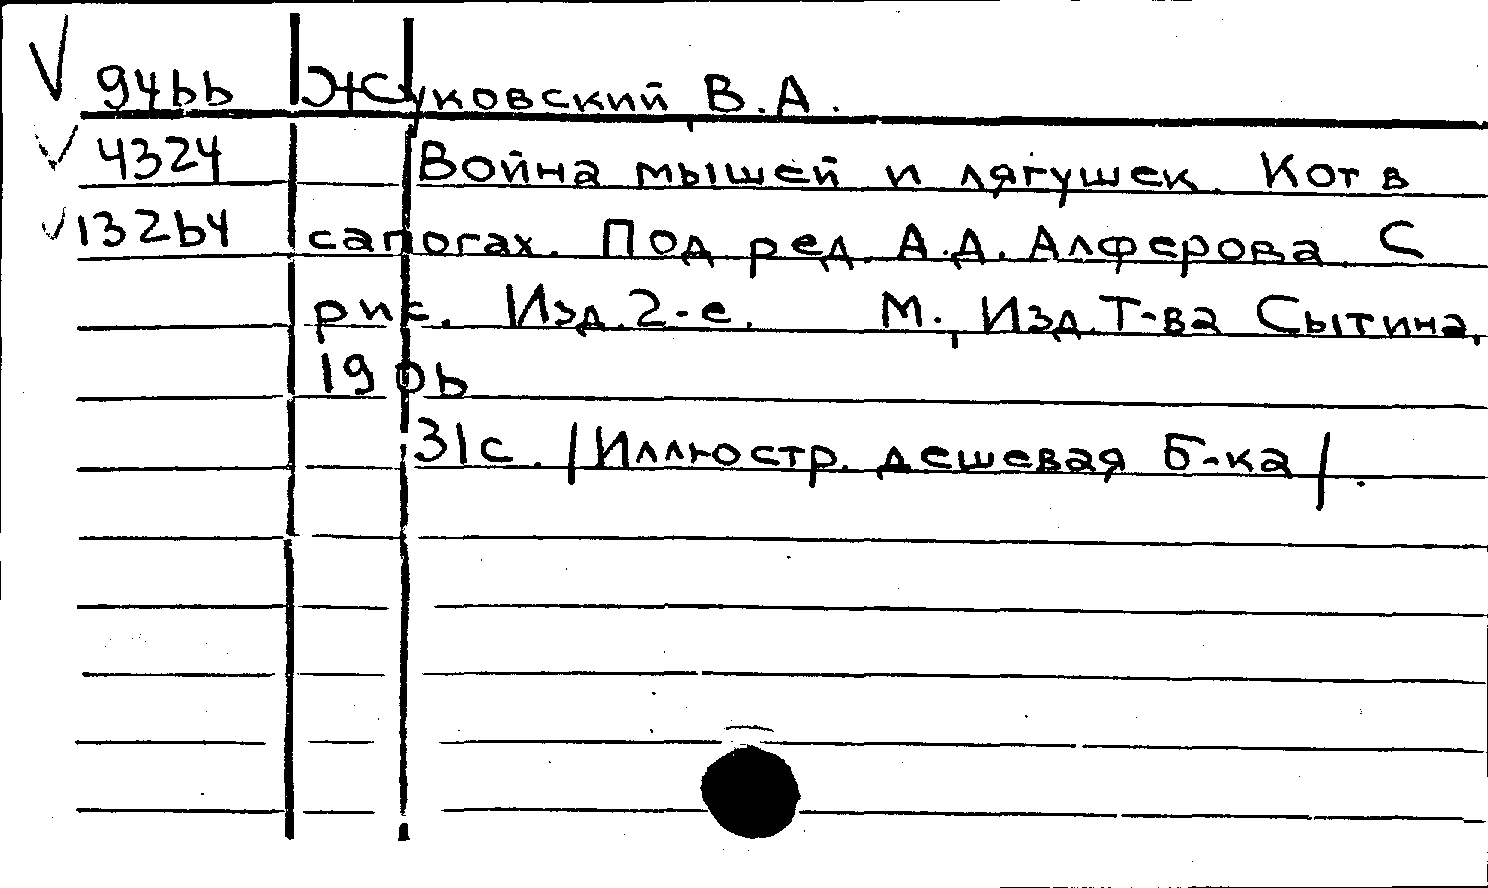 9466 Жуковский, В.А.
4324 Война мышей и лягушек. Кот в
13264 сапогах. Под ред. А.Д. Алферова. С
рис. Изд. 2-е. М., Изд. Т-ва Сытина,
1906
31с. /Иллюстр. дешевая б-ка/.